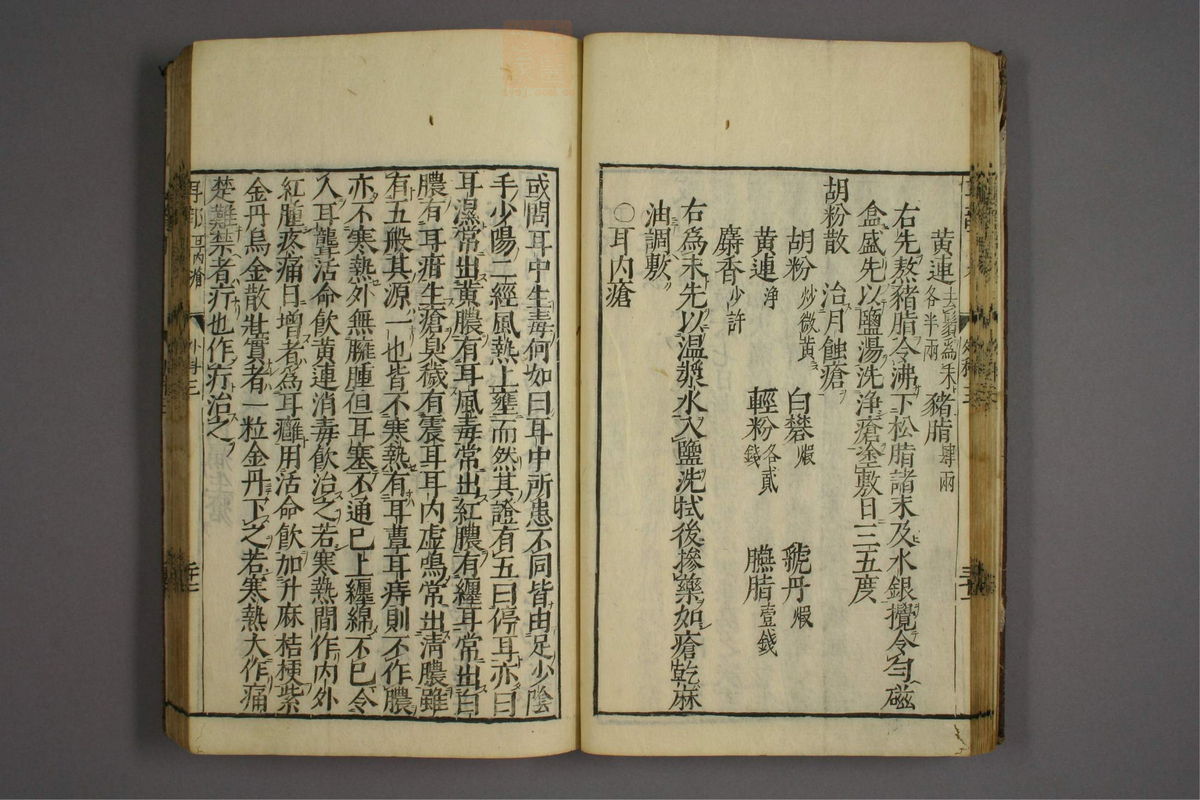 黄連去鬚爲末各半兩　豬脂肆兩
右先熬豬脂令沸下松脂諸末及水銀攪令勻磁
盒盛先以鹽湯洗浄瘡塗敷日三五度
胡粉散　治月蝕瘡
胡粉炒微黄　白礬煆　虢丹煆
黄連浄　輕粉各貳錢　臙脂壹錢
麝香少許
右爲末先以温漿水入鹽洗拭後摻藥如瘡乾麻
油調敷
〇耳内瘡
或問耳中生毒何如曰耳中所患不同皆由足少陰
手少陽二經風熱上壅而然其證有五曰停耳亦曰
耳濕常出黄膿有耳風毒常出紅膿有纏耳常出白
膿有耳疳生瘡臭穢有震耳耳内虚鳴常出淸膿雖
有五般其源一也皆不寒熱有耳蕈耳痔則不作膿
亦不寒熱外無臃腫但耳塞不通已上纏綿不已令
人耳聾活命飲黄連消毒飲治之若寒熱間作内外
紅腫疼痛日增者爲耳癰用活命飲加升麻桔梗紫
金丹烏金散壯實者一粒金丹下之若寒熱大作痛
楚難禁者疔也作疔治之
耳部　耳内瘡